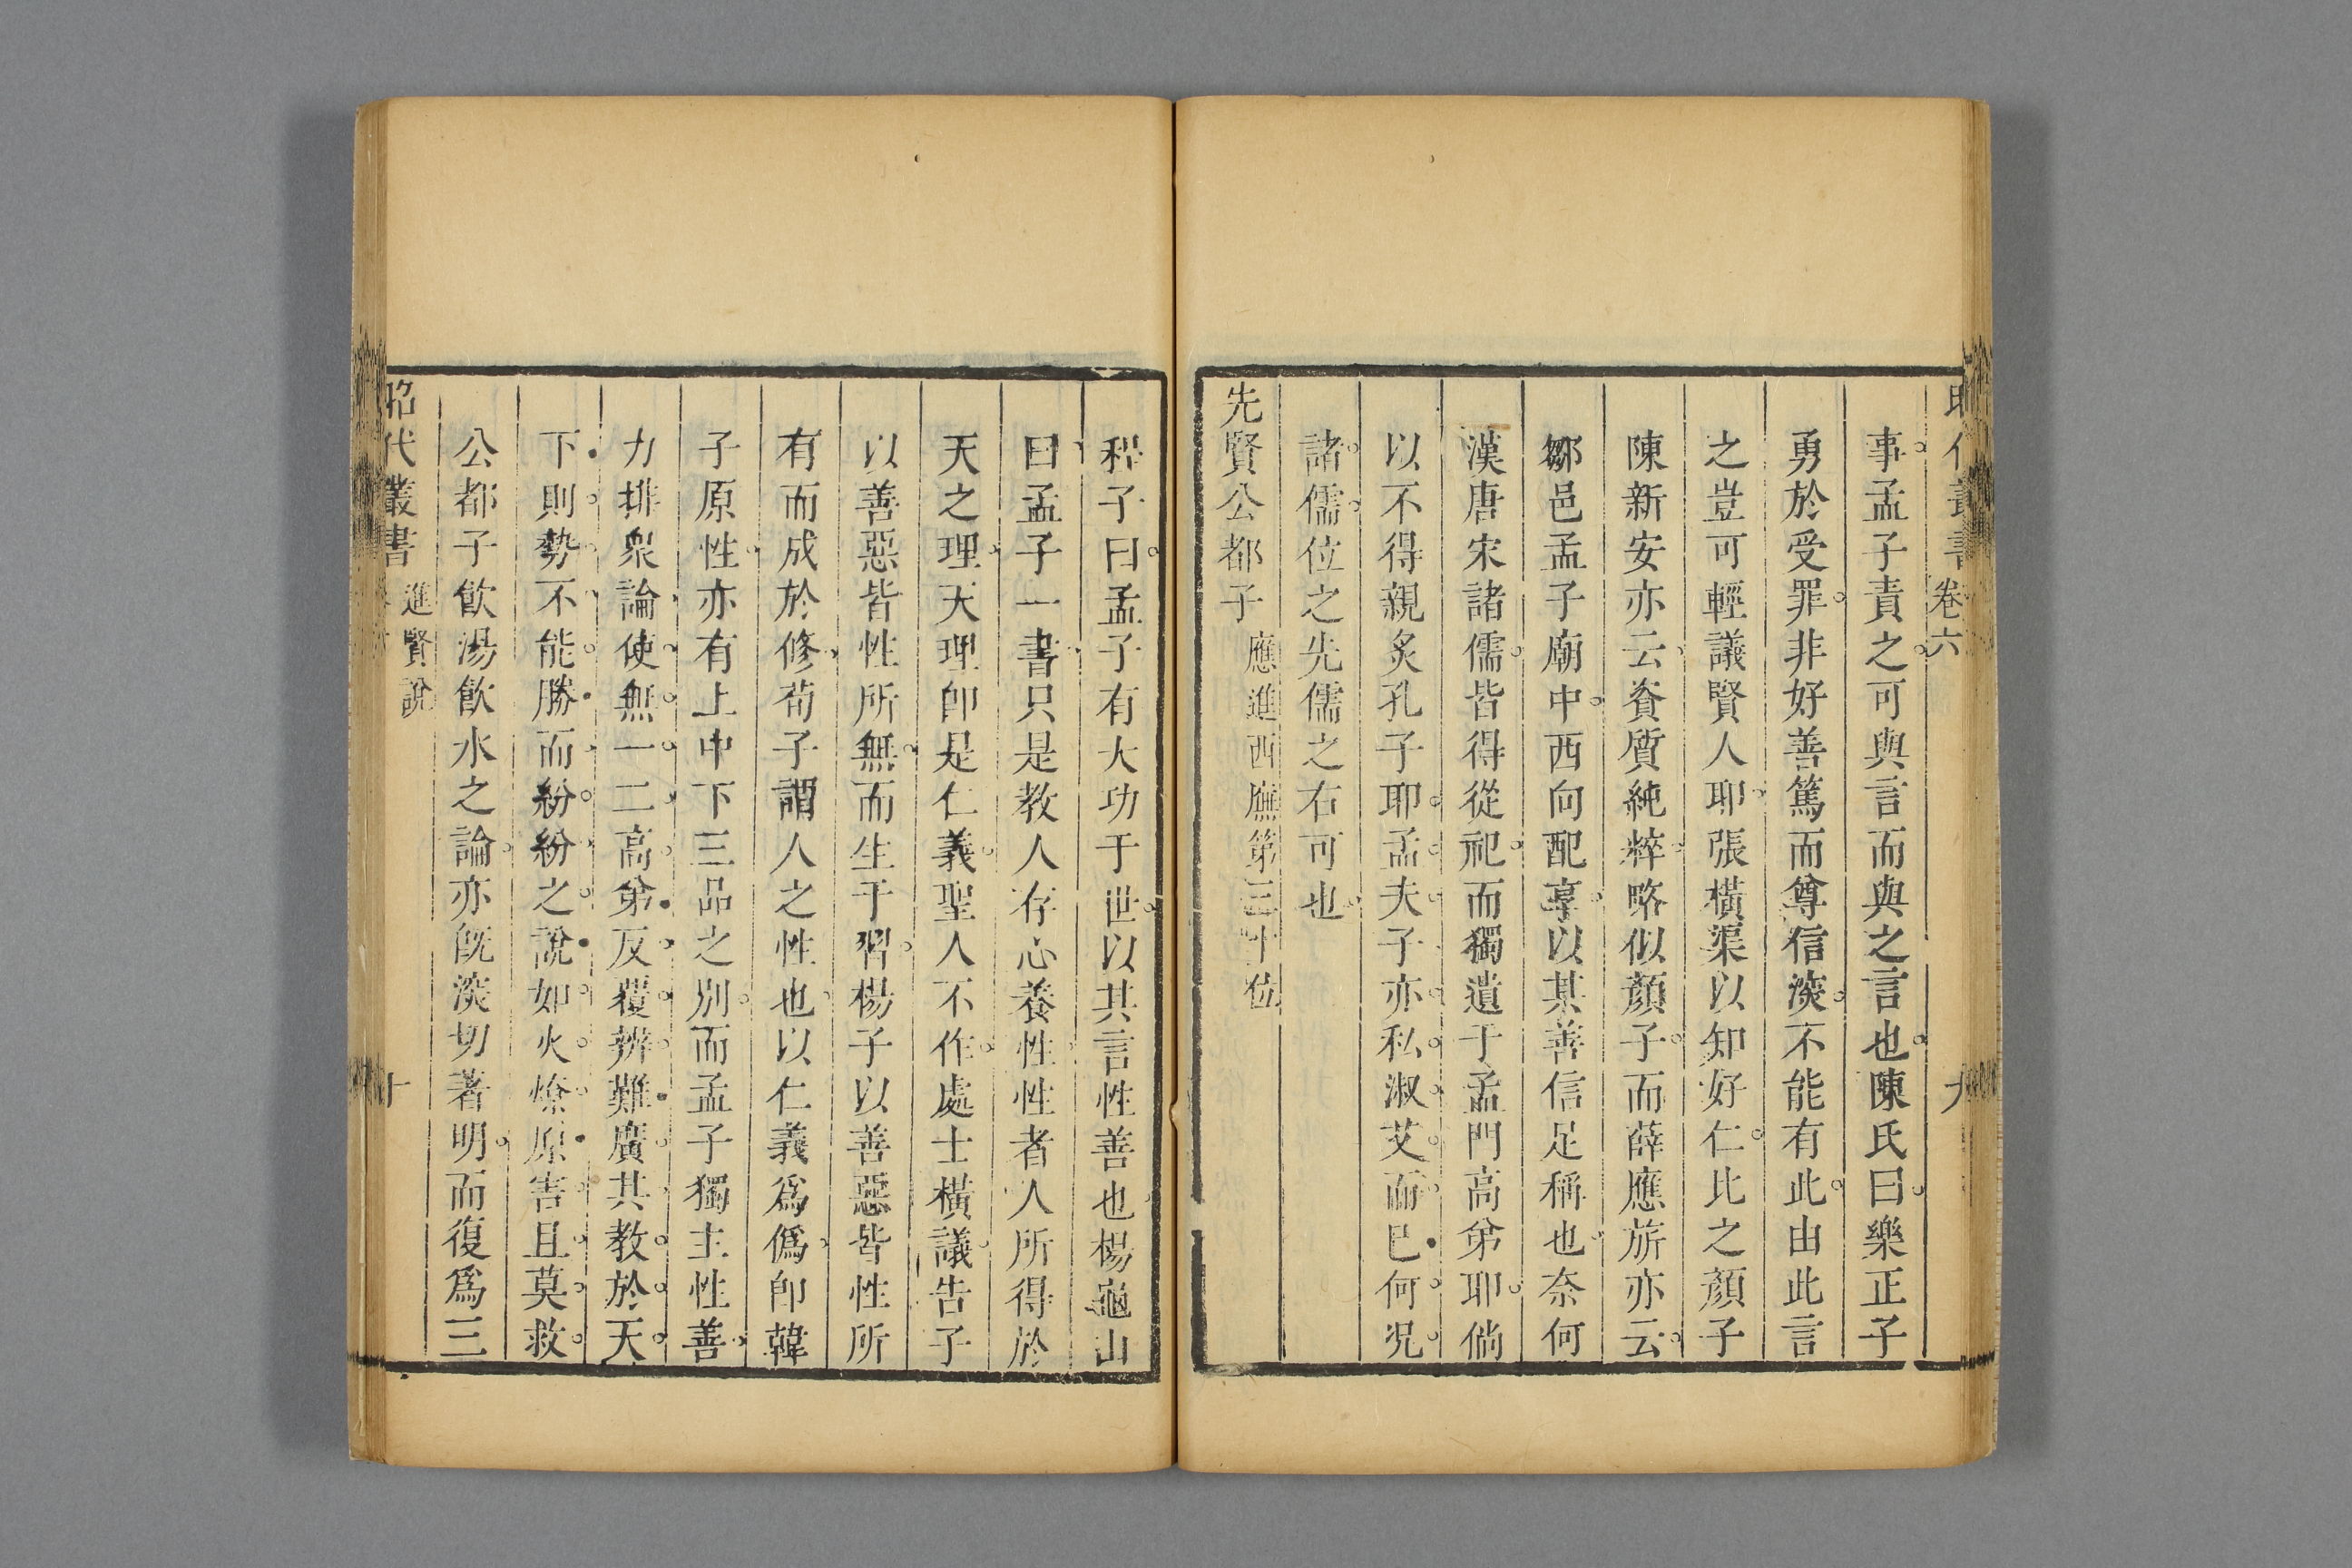 昭代叢書 卷六 九
事孟子責之可與言而與之言也陳氏曰樂正子
勇於受罪非好善篤而尊信深不能有此由此言
之豈可輕議賢人耶張橫渠以知好仁比之顏子
陳新安亦云資質純粹略似顏子而薛應旂亦云
鄒邑孟子廟中西向配享以其善信足稱也奈何
漢唐宋諸儒皆得從祀而獨遺于孟門高弟耶倘
以不得親炙孔子耶孟夫子亦私淑艾而已何況
諸儒位之先儒之右可也
先賢公都子 應進西廡第三十位
程子曰孟子有大功于世以其言性善也楊龜山
曰孟子一書只是教人存心養性性者人所得於
天之理天理即是仁義聖人不作處士橫議告子
以善惡皆性所無而生于習楊子以善惡皆性所
有而成於修荀子謂人之性也以仁義為偽即韓
子原性亦有上中下三品之別而孟子獨主性善
力排衆論使無一二高弟反覆辨難廣其教於天
下則勢不能勝而紛紛之說如火燎原害且莫救
公都子飲湯飲水之論亦旣深切著明而復爲三
昭代叢書 進賢說 十